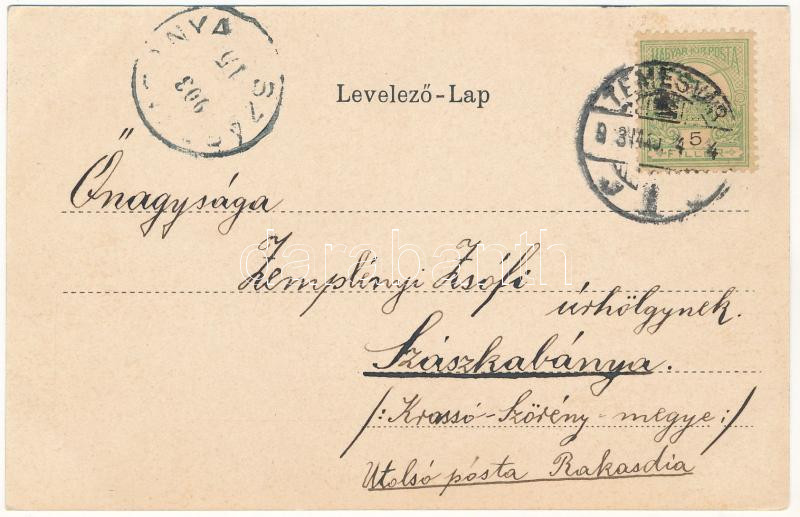 NYA
15
903
SZÁ
Levelező-Lap
MAGYAR KIR. POSTA
TEMESVÁR
5
1
Őnagysága
Zemplényi Zsófi
úrhölgynek.
Szászkabánya.
/: Krassó-Szörény-megye :/
Utolsó pósta Rakasdia
darabanth